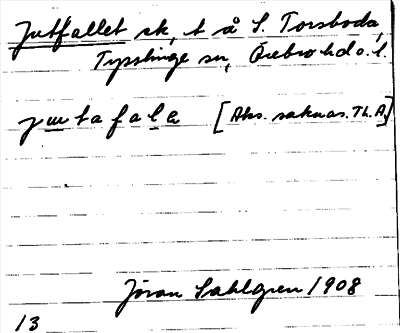 Jutfallet sk, t å S. Torsboda,
Tysslinge sn, Örebro hd o. l.
jutafala [Aks. saknas. Th. A.]
Jöran Sahlgren 1908
13